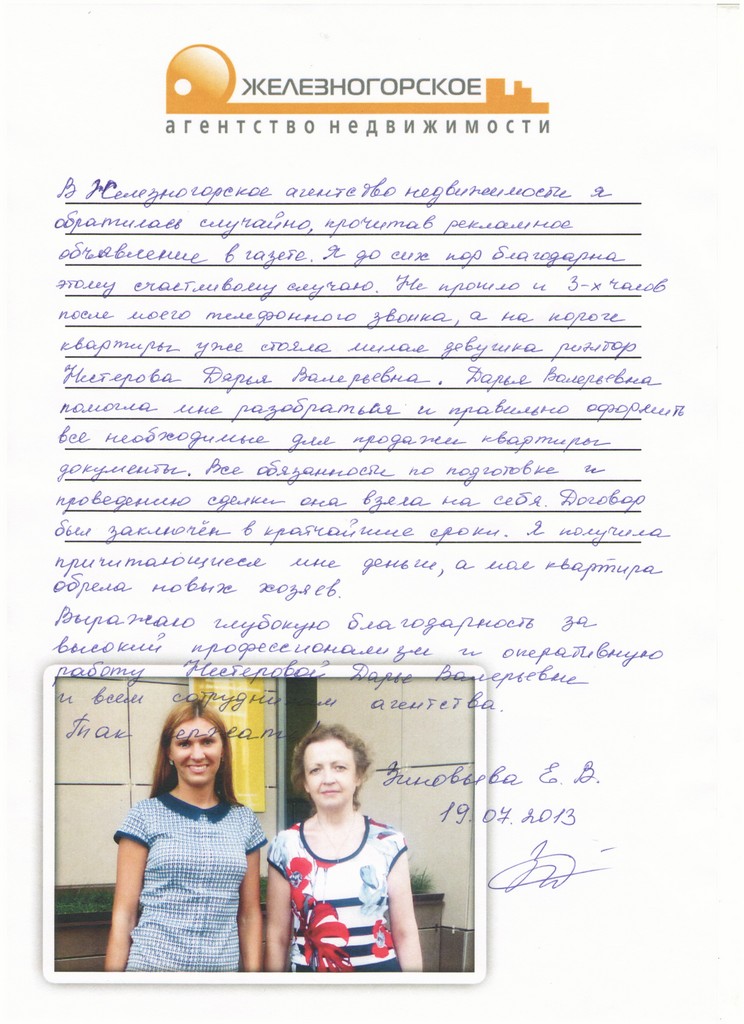 ЖЕЛЕЗНОГОРСКОЕ
агентство недвижимости
В Железногорское агентство недвижимости я
обратилась случайно, прочитав рекламное
объявление в газете. Я до сих пор благодарна
этому счастливому случаю. Не прошло и 3-х часов
после моего телефонного звонка, а на пороге
квартиры уже стояла милая девушка риэлтор
Нестерова Дарья Валерьевна. Дарья Валерьевна
помогла мне разобраться и правильно оформить
все необходимые для продажи квартиры
документы. Все обязанности по подготовке и
проведению сделки она взяла на себя. Договор
был заключён в кратчайшие сроки. Я получила
причитающиеся мне деньги, а моя квартира
обрела новых хозяев.
Выражаю глубокую благодарность за
высокий профессионализм и оперативную
работу Нестеровой Дарье Валерьевне
и всем сотрудникам агентства.
Так держать!
Зиновьева Е. В.
19.07.2013